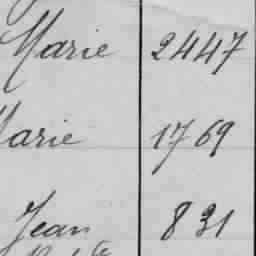 Marie 2447
Marie 1769
Jean 831